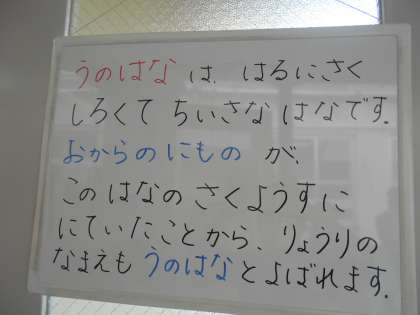 うのはな は、はるにさく
しろくて ちいさな はなです.
おからのにもの が、
この はなの さくようすに
にていたことから、りょうりの
なまえも うのはな と よばれます.